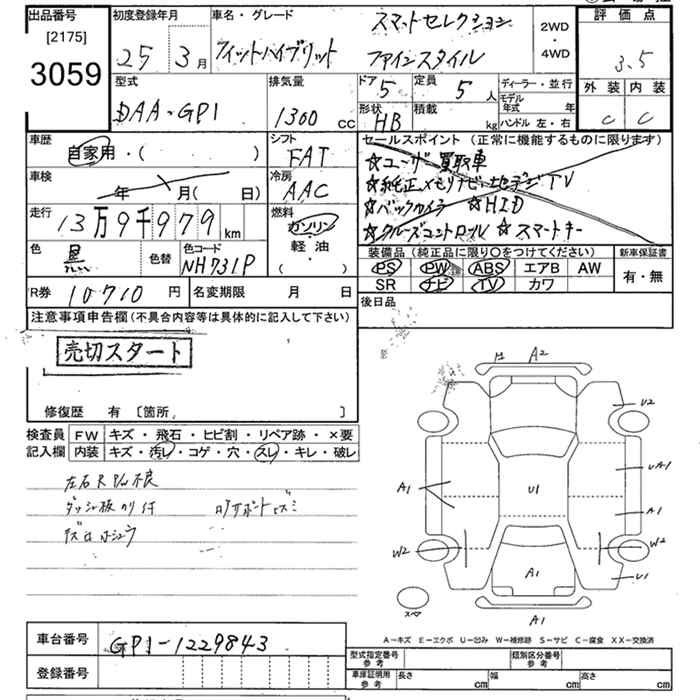 出品番号
[2175]
3059
初度登録年月
25 3月
車名・グレード
フィットハイブリット
スマートセレクション
ファインスタイル
2WD
・
4WD
評価点
3.5
外装 内装
C C
型式
DAA-GP1
排気量
1300 CC
ドア 5
定員 5人
形状 HB
積載 kg
ディーラー・並行
モデル年式 年
ハンドル 左・右
車歴
自家用・( )
シフト
FAT
セールスポイント (正常に機能するものに限ります)
☆ユーザー買取車
☆純正メモリナビ+地デジTV
☆バックカメラ ☆HID
☆クルーズコントロール ☆スマートキー
車検
年 月(日)
冷房
AAC
走行
13万9千979km
燃料
ガソリン
軽油
・( )
色 黒
色替
色コード
NH731P
装備品 (純正品に限り○をつけてください)
PS PW ABS エアB AW
SR ナビ TV カワ
新車保証書
有・無
R券 10710円
名変期限 月 日
後日品
注意事項申告欄 (不具合内容等は具体的に記入して下さい)
売切スタート
修復歴 有 〔箇所, 〕
検査員
記入欄
FW キズ・飛石・ヒビ割・リペア跡・×要
内装 キズ・汚レ・コゲ・穴・スレ・キレ・破レ
ダッシュ板のり付
A2
U2
UA1
A1
U1
A1
W2
W2
A1
U1
スペア
A1
A-キズ E-エクボ U-凹み W-補修跡 S-サビ C-腐食 XX-交換済
車台番号 GP1-1229843
登録番号
型式指定番号
参考
類別区分番号
参考
車庫証明用
参考
長さ cm
幅 cm
高さ cm